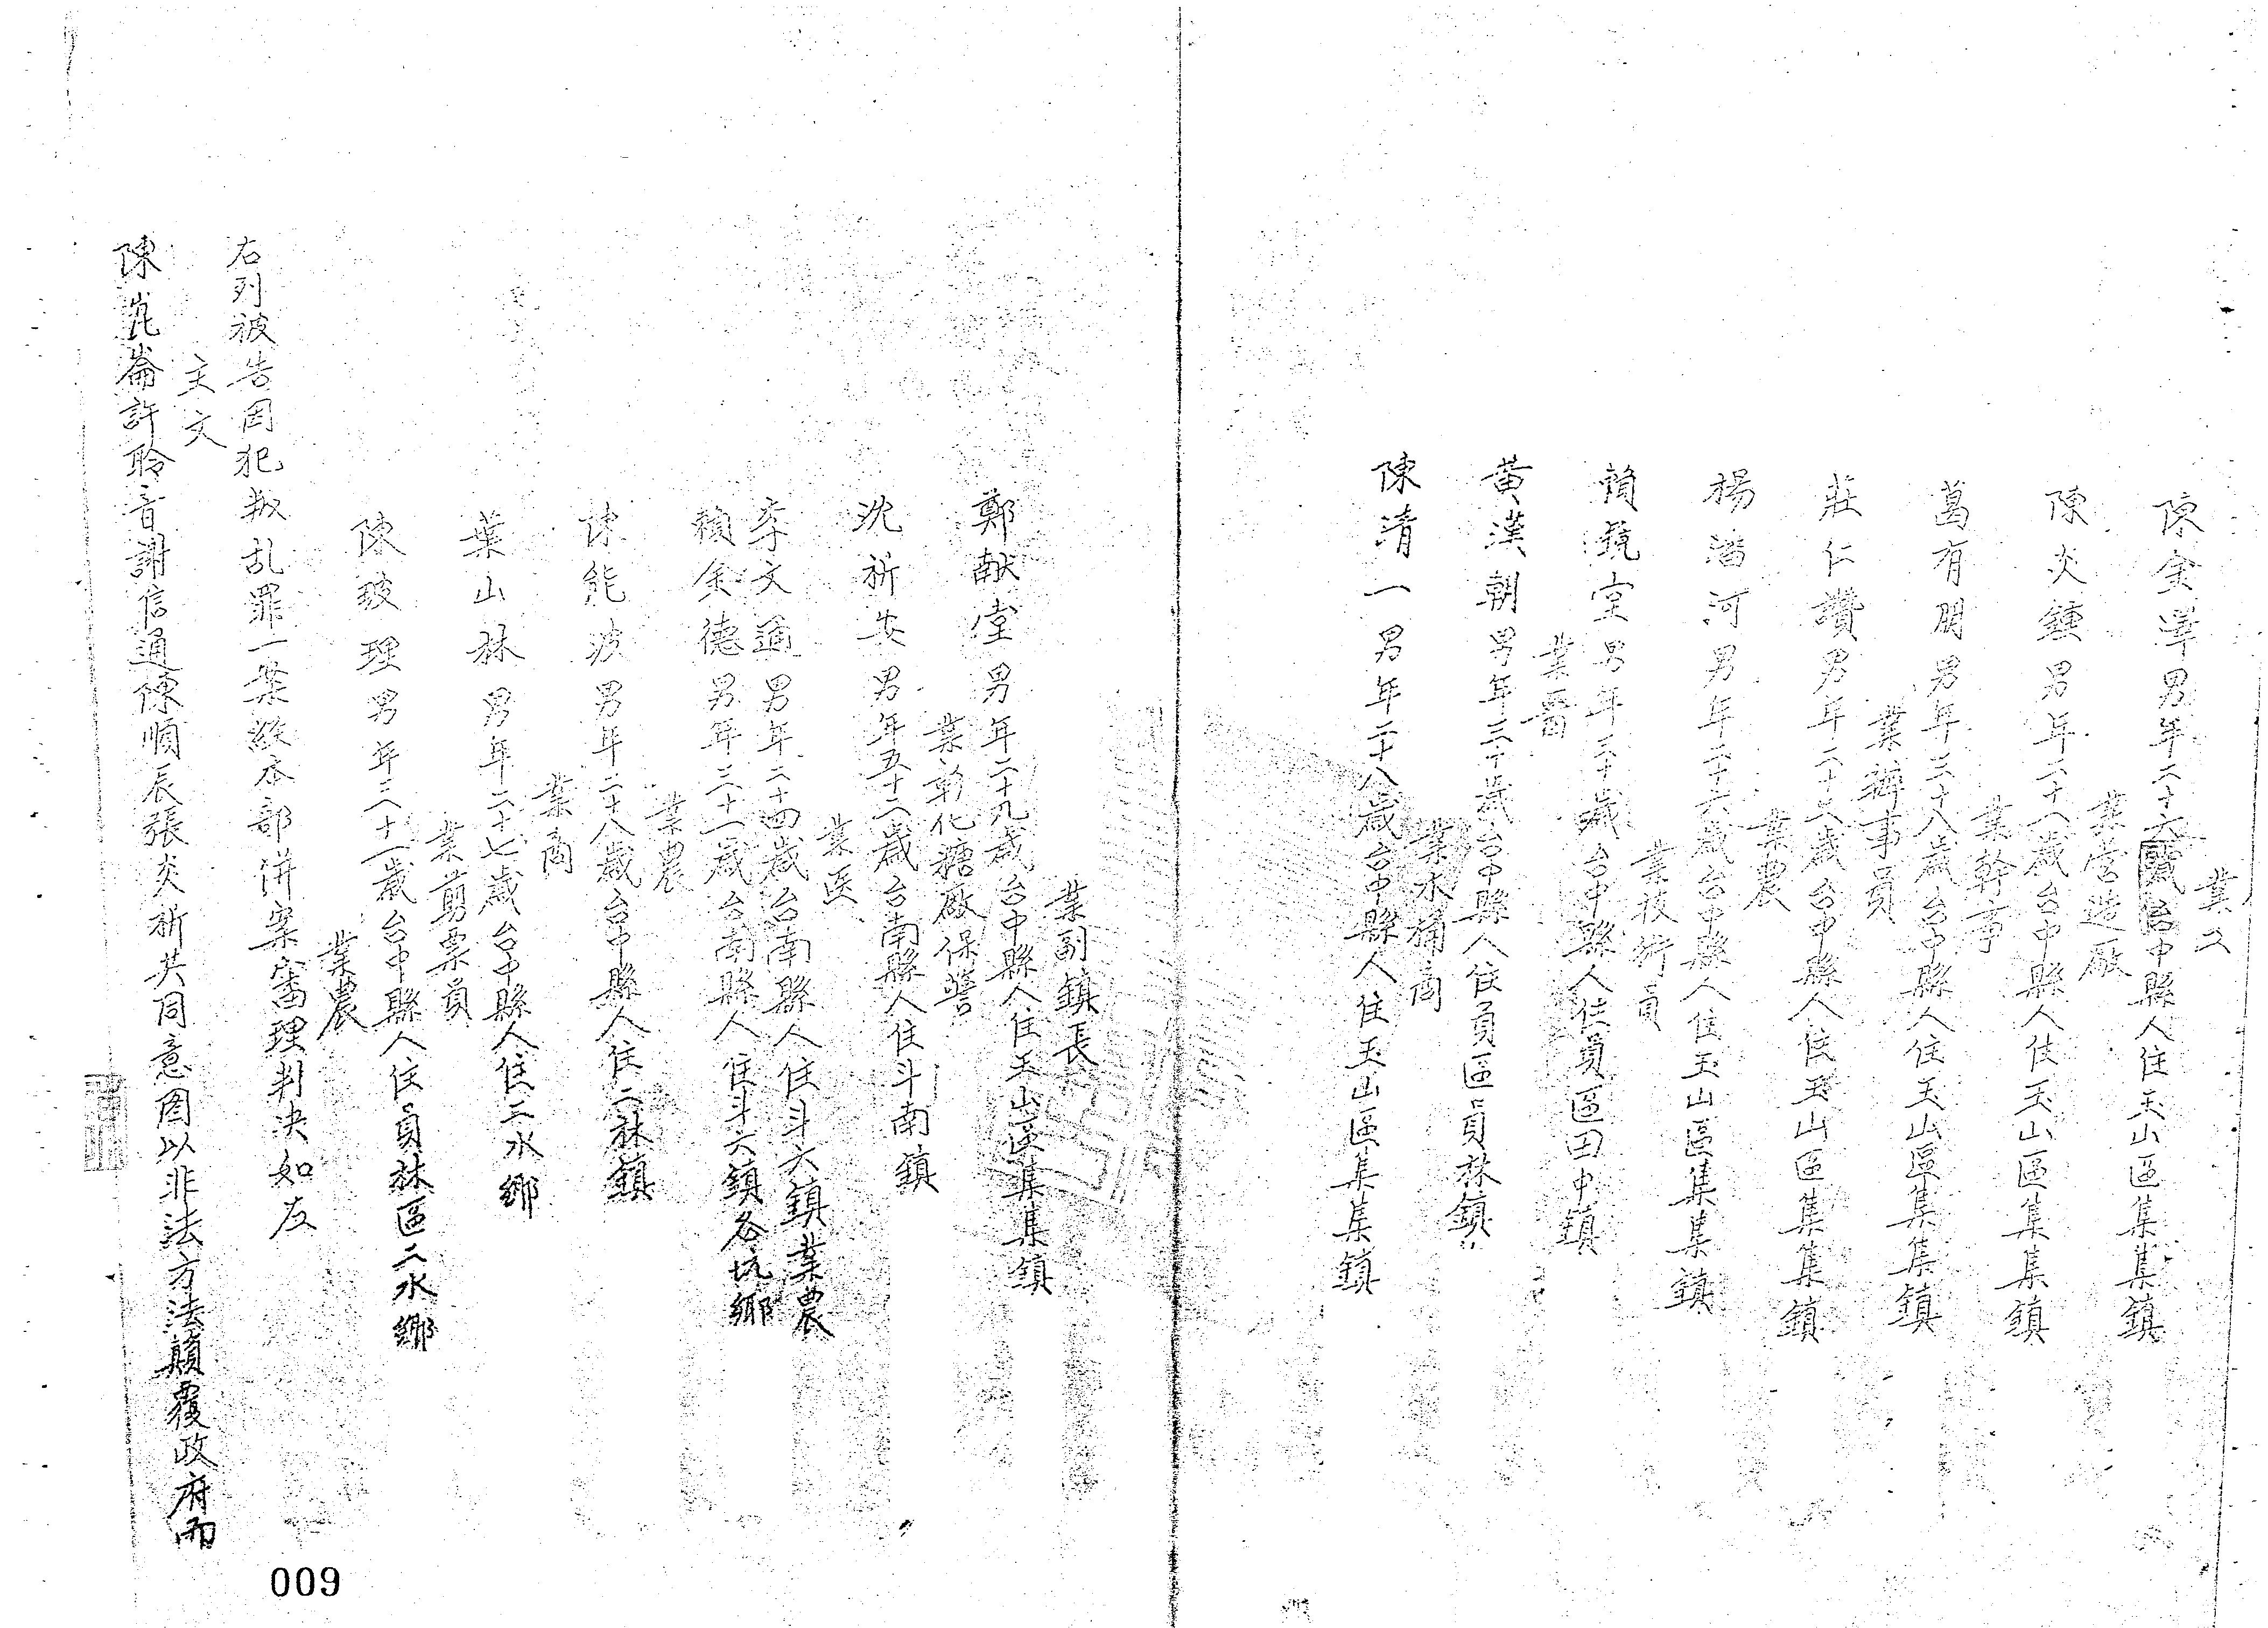 業工
陳金澤男年二十六歲台中縣人住玉山區集集鎮
業營造廠
陳炎鍾男年二十八歲台中縣人住玉山區集集鎮
業幹事
葛有朋男年三十八歲台中縣人住玉山區集集鎮
業辦事員
莊仁讚男年二十二歲台中縣人住玉山區集集鎮
業農
楊潘河男年二十六歲台中縣人住玉山區集集鎮
業技術員
賴 堂男年三十歲台中縣人住員區田中鎮
業醫
黃漢朝男年三十歲台中縣人住員區員林鎮
業水桶商
陳清一男年二十八歲台中縣人住玉山區集集鎮
業副鎮長
鄭献堂男年二十九歲台中縣人住玉山區集集鎮
業彰化糖廠保警
沈 男年五十二歲台南縣人住斗南鎮
業医
李文 男年二十四歲台南縣人住斗六鎮業農
賴金德男年三十一歲台南縣人住斗六鎮 坑鄉
業農
陳能波男年二十八歲台中縣人住二林鎮
業商
葉山林男年二十七歲台中縣人住二水鄉
業剪票員
陳玻理男年三十一歲台中縣人住員林區二水鄉
業農
右列被告因犯叛乱罪一案經本部併案審理判决如左
主文
陳崑崙許聆音謝信通陳順辰張炎祈共同意图以非法方法顛覆政府而
009